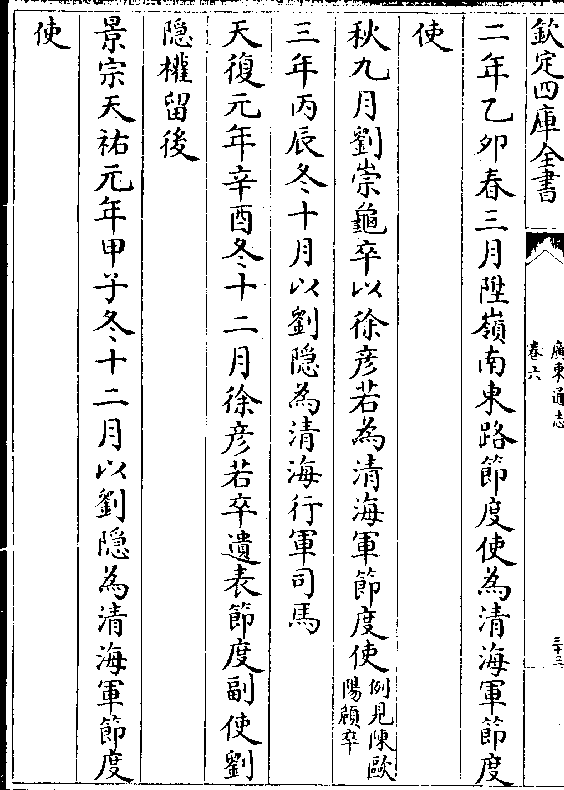 欽定四庫全書
廣東通志
卷六
三十三
二年乙卯春三月陞嶺南東路節度使為清海軍節度
使
秋九月劉崇龜卒以徐彦若為清海軍節度使例見陳歐
陽頠卒
三年丙辰冬十月以劉隠為清海行軍司馬
天復元年辛酉冬十二月徐彦若卒遺表節度副使劉
隠權留後
景宗天祐元年甲子冬十二月以劉隠為清海軍節度
使